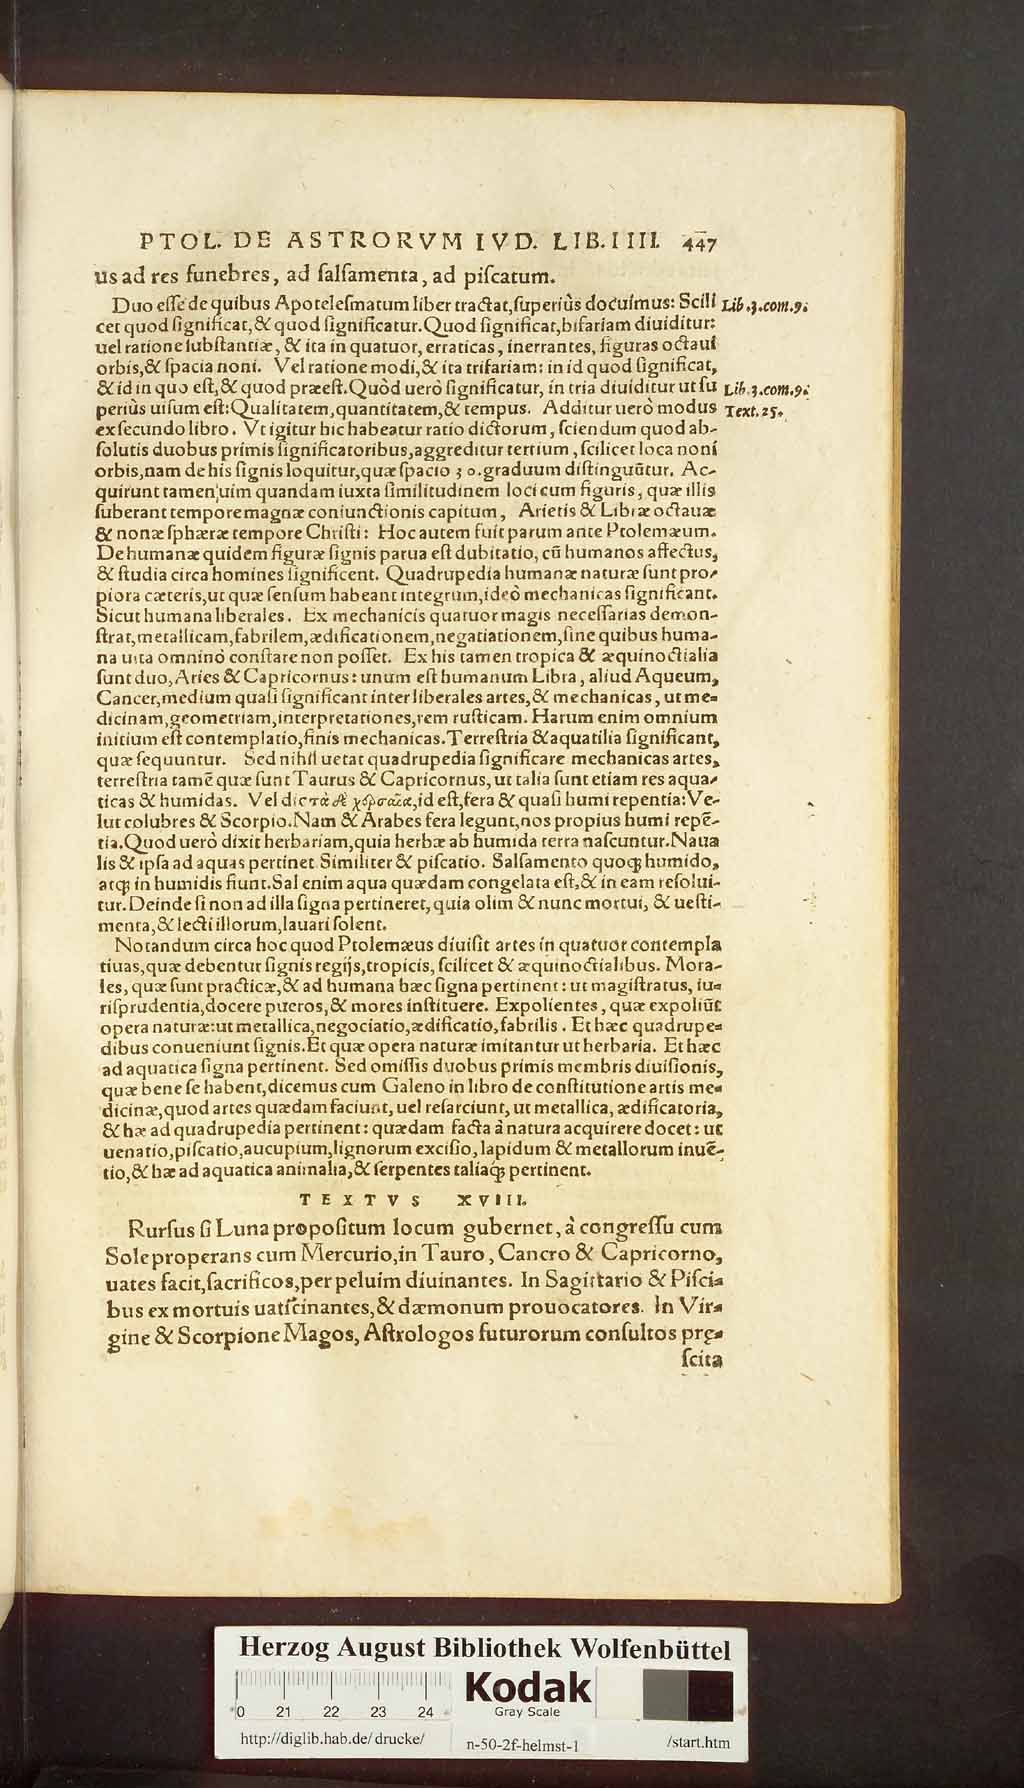 PTOL. DE ASTRORVM IVD. LIB. IIII. 447
us ad res funebres, ad salsamenta, ad piscatum.
Duo esse de quibus Apotelesmatum liber tractat, superiùs docuimus: Scili Lib.3.com.9.
cet quod significat, & quod significatur. Quod significat, bifariam diuiditur:
uel ratione substantiæ, & ita in quatuor, erraticas, inerrantes, figuras octaui
orbis, & spacia noni. Vel ratione modi, & ita trifariam: in id quod significat,
& id in quo est, & quod præest. Quòd uerò significatur, in tria diuiditur ut su Lib.3.com.9.
periùs uisum est: Qualitatem, quantitatem, & tempus. Additur uerò modus Text.25.
ex secundo libro. Vt igitur hic habeatur ratio dictorum, sciendum quod ab-
solutis duobus primis significatoribus, aggreditur tertium, scilicet loca noni
orbis, nam de his signis loquitur, quæ spacio 30. graduum distinguūtur. Ac-
quirunt tamen uim quandam iuxta similitudinem loci cum figuris, quæ illis
suberant tempore magnæ coniunctionis capitum, Arietis & Libræ octauæ
& nonæ sphæræ tempore Christi: Hoc autem fuit parum ante Ptolemæum.
De humanæ quidem figuræ signis parua est dubitatio, cū humanos affectus,
& studia circa homines significent. Quadrupedia humanæ naturæ sunt pro-
piora cæteris, ut quæ sensum habeant integrum, ideò mechanicas significant.
Sicut humana liberales. Ex mechanicis quatuor magis necessarias demon-
strat, metallicam, fabrilem, ædificationem, negatiationem, sine quibus huma-
na uita omninò constare non posset. Ex his tamen tropica & æquinoctialia
sunt duo, Aries & Capricornus: unum est humanum Libra, aliud Aqueum,
Cancer, medium quasi significant inter liberales artes, & mechanicas, ut me-
dicinam, geometriam, interpretationes, rem rusticam. Harum enim omnium
initium est contemplatio, finis mechanicas. Terrestria & aquatilia significant,
quæ sequuntur. Sed nihil uetat quadrupedia significare mechanicas artes,
terrestria tamē quæ sunt Taurus & Capricornus, ut talia sunt etiam res aqua-
ticas & humidas. Vel dic τὰ δὲ χερσαῖα, id est, fera & quasi humi repentia: Ve-
lut colubres & Scorpio. Nam & Arabes fera legunt, nos propius humi repē-
tia. Quod uerò dixit herbariam, quia herbæ ab humida terra nascuntur. Naua
lis & ipsa ad aquas pertinet Similiter & piscatio. Salsamento quoq; humido,
atq; in humidis fiunt. Sal enim aqua quædam congelata est, & in eam resolui-
tur. Deinde si non ad illa signa pertineret, quia olim & nunc mortui, & uesti-
menta, & lecti illorum, lauari solent.
Notandum circa hoc quod Ptolemæus diuisit artes in quatuor contempla
tiuas, quæ debentur signis regijs, tropicis, scilicet & æquinoctialibus. Mora-
les, quæ sunt practicæ, & ad humana hæc signa pertinent: ut magistratus, iu-
risprudentia, docere pueros, & mores instituere. Expolientes, quæ expoliūt
opera naturæ: ut metallica, negociatio, ædificatio, fabrilis. Et hæc quadrupe-
dibus conueniunt signis. Et quæ opera naturæ imitantur ut herbaria. Et hæc
ad aquatica signa pertinent. Sed omissis duobus primis membris diuisionis,
quæ bene se habent, dicemus cum Galeno in libro de constitutione artis me-
dicinæ, quod artes quædam faciunt, uel resarciunt, ut metallica, ædificatoria,
& hæ ad quadrupedia pertinent: quædam facta à natura acquirere docet: ut
uenatio, piscatio, aucupium, lignorum excisio, lapidum & metallorum inuē-
tio, & hæ ad aquatica animalia, & serpentes taliaq; pertinent.
TEXTVS XVIII.
Rursus si Luna propositum locum gubernet, à congressu cum
Sole properans cum Mercurio, in Tauro, Cancro & Capricorno,
uates facit, sacrificos, per peluim diuinantes. In Sagittario & Pisci-
bus ex mortuis uaticinantes, & dæmonum prouocatores. In Vir-
gine & Scorpione Magos, Astrologos futurorum consultos prę-
scita
Herzog August Bibliothek Wolfenbüttel
Kodak
Gray Scale
0 21 22 23 24
http://diglib.hab.de/drucke/ n-50-2f-helmst-1 /start.htm